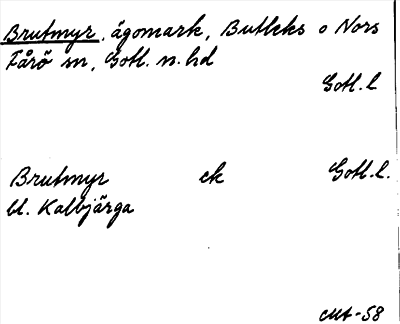 Brutmyr, ägomark, Butleks o Nors
Fårö sn, Gotl. n. hd
Gotl. l
Brutmyr ek Gotl. l.
bl. Kalbjärga
-58